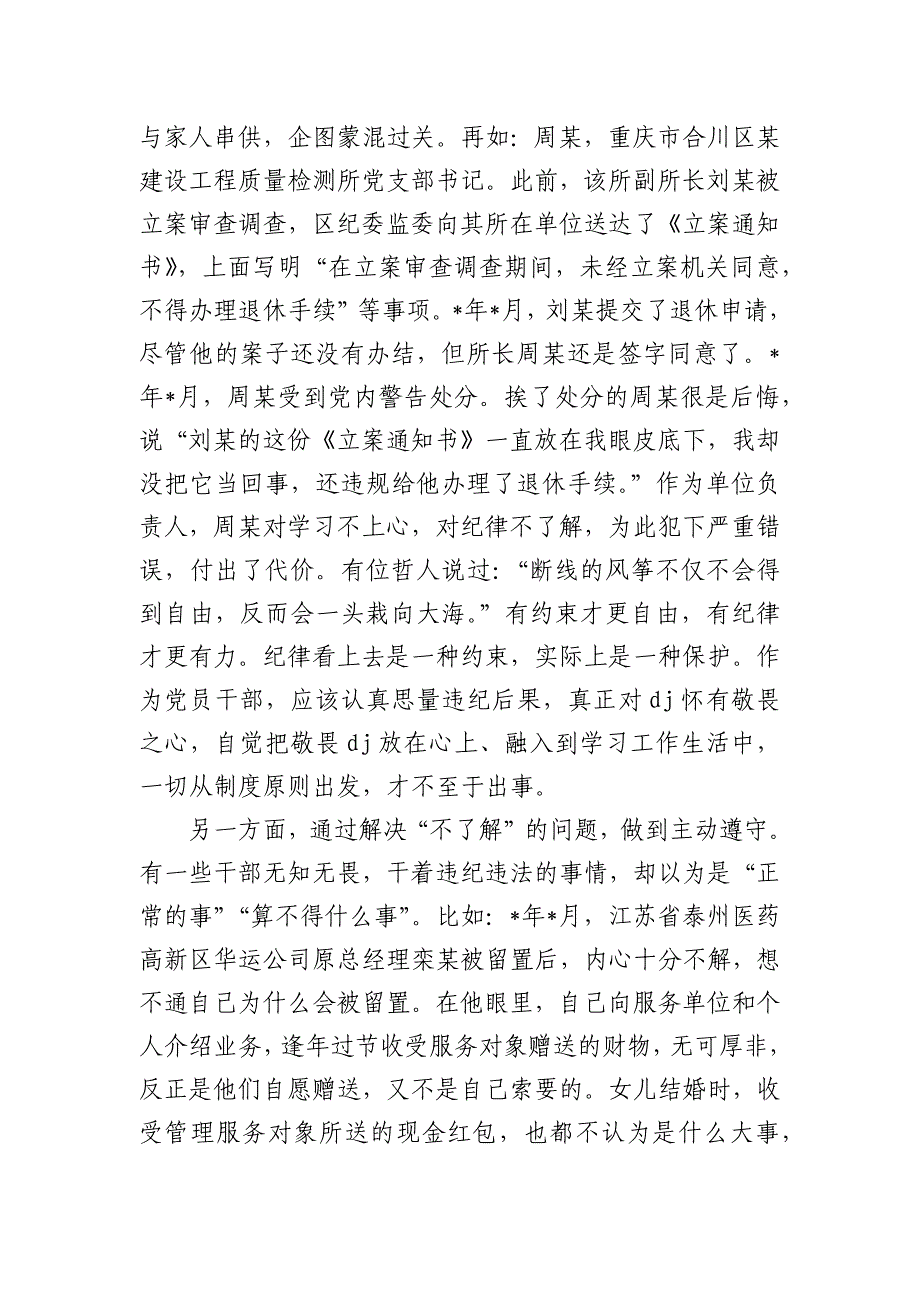 与家人串供，企图蒙混过关。再如：周某，重庆市合川区某
建设工程质量检测所党支部书记。此前，该所副所长刘某被
立案审查调查，区纪委监委向其所在单位送达了《立案通知
书》，上面写明“在立案审查调查期间，未经立案机关同意，
不得办理退休手续”等事项。*年*月，刘某提交了退休申请，
尽管他的案子还没有办结，但所长周某还是签字同意了。*
年*月，周某受到党内警告处分。挨了处分的周某很是后悔，
说“刘某的这份《立案通知书》一直放在我眼皮底下，我却
没把它当回事，还违规给他办理了退休手续。”作为单位负
责人，周某对学习不上心，对纪律不了解，为此犯下严重错
误，付出了代价。有位哲人说过：“断线的风筝不仅不会得
到自由，反而会一头栽向大海。”有约束才更自由，有纪律
才更有力。纪律看上去是一种约束，实际上是一种保护。作
为党员干部，应该认真思量违纪后果，真正对dj怀有敬畏
之心，自觉把敬畏dj放在心上、融入到学习工作生活中，
一切从制度原则出发，才不至于出事。
另一方面，通过解决“不了解”的问题，做到主动遵守。
有一些干部无知无畏，干着违纪违法的事情，却以为是“正
常的事”“算不得什么事”。比如：*年*月，江苏省泰州医药
高新区华运公司原总经理栾某被留置后，内心十分不解，想
不通自己为什么会被留置。在他眼里，自己向服务单位和个
人介绍业务，逢年过节收受服务对象赠送的财物，无可厚非，
反正是他们自愿赠送，又不是自己索要的。女儿结婚时，收
受管理服务对象所送的现金红包，也都不认为是什么大事，